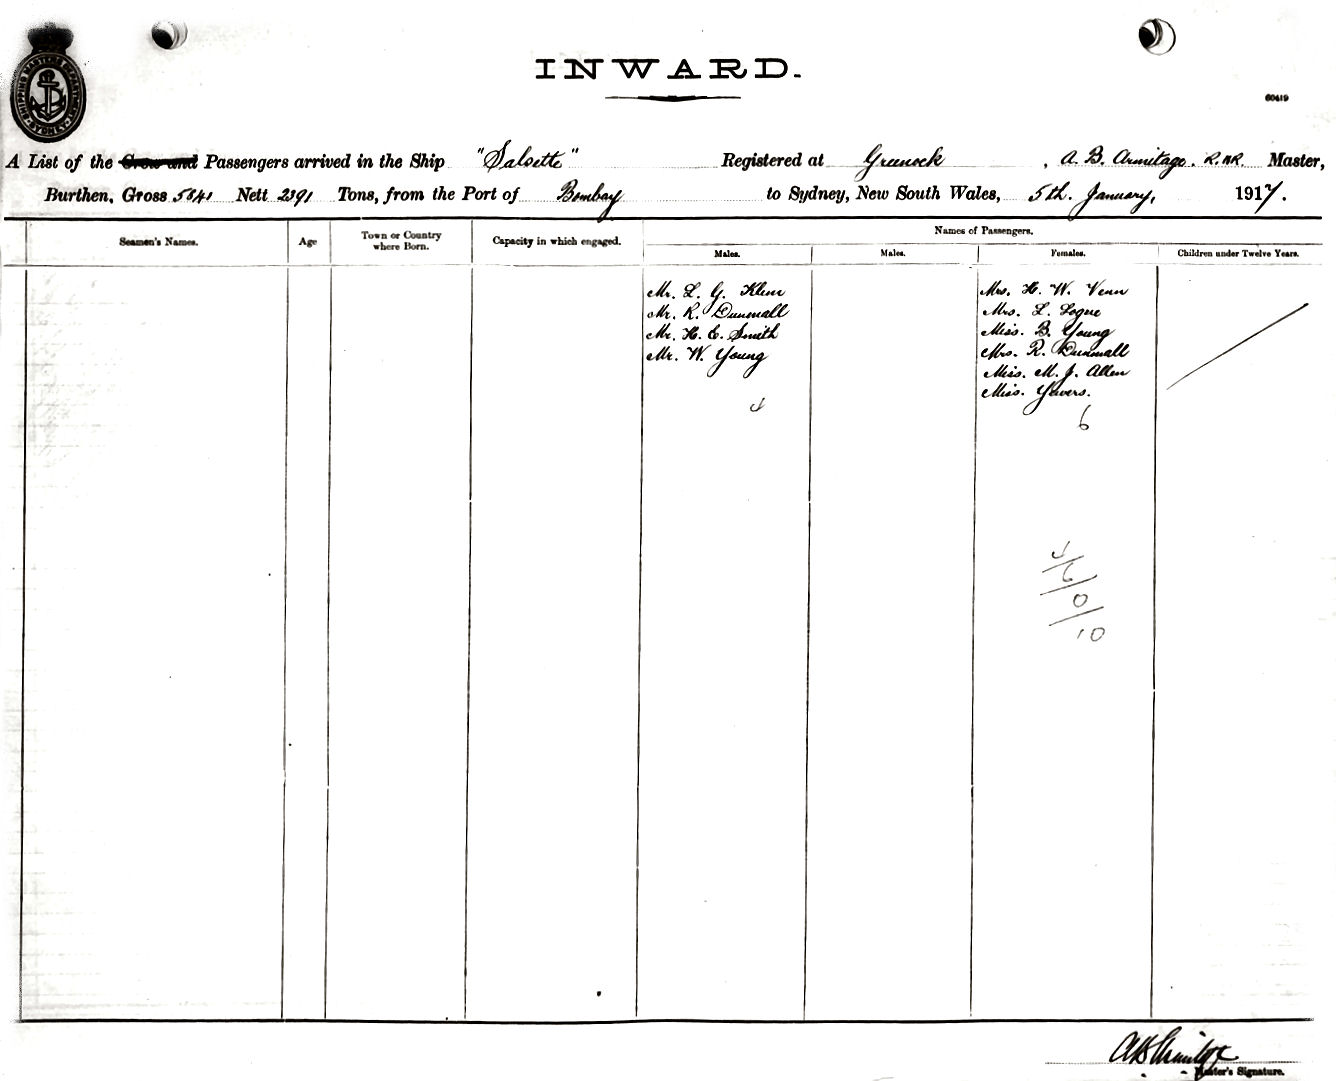 SHIPPING MASTERS DEPARTMENT
SYDNEY
INWARD.
60419
A List of the Crew and Passengers arrived in the Ship "Salsette" Registered at Greenock , A. B. Armitage. R.N.R. Master,
Burthen, Gross 5841 Nett 2391 Tons, from the Port of Bombay to Sydney, New South Wales, 5th. January, 1917.
Seamen's Names. Age Town or Country where Born. Capacity in which engaged. Names of Passengers.
Males. Males. Females. Children under Twelve Years.
Mr. L. G. Klem Mrs. H. W. Venn
Mr. R. Dunmall Mrs. L. Logue
Mr. H. E. Smith Miss. B. Young
Mr. W. Young Mrs. R. Dunmall
Miss. M. J. Allen
Miss. Yewers.
4 6
4/
6/
0/
10
A B Armitage
Master's Signature.